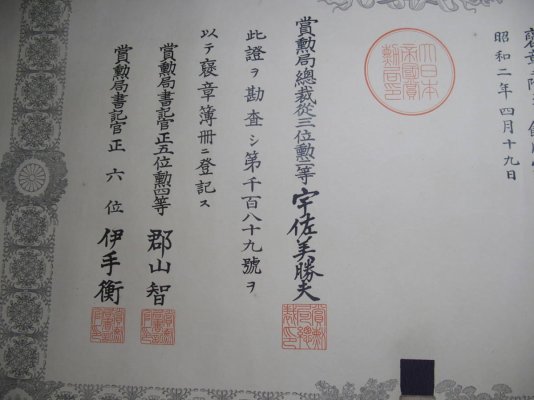 褒章
昭和二年四月十九日
大日本
帝國賞
勲局印
賞勲局總裁從三位勲一等 宇佐美勝夫
此證ヲ勘査シ第千百八十九號ヲ
以テ褒章簿册ニ登記ス
賞勲局書記官正五位勲四等 郡山智
賞勲局書記官正六位 伊手衡